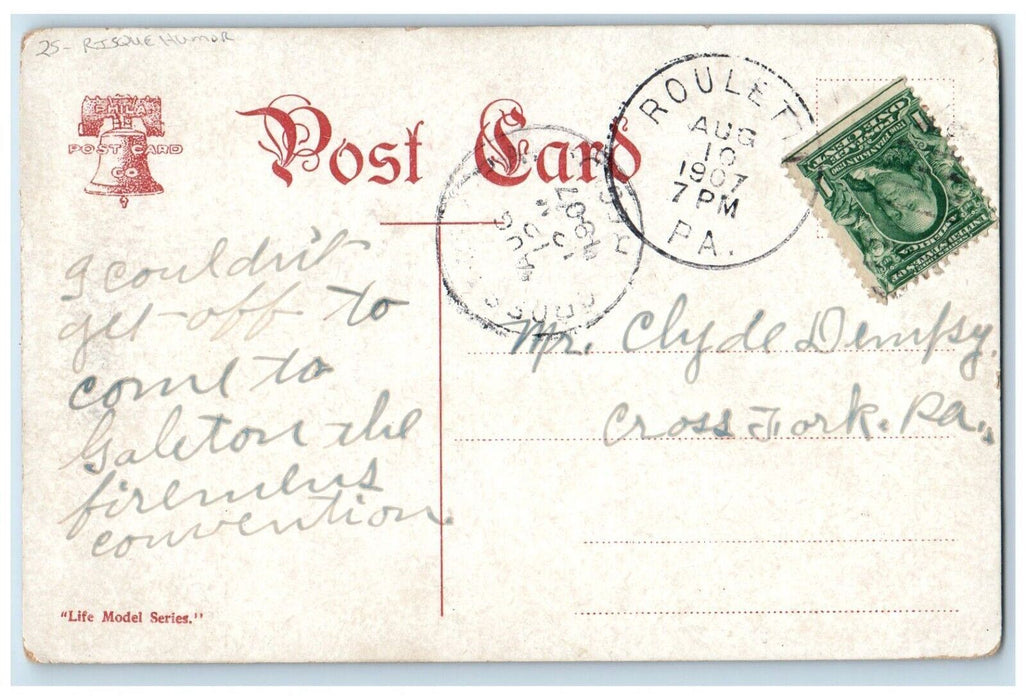 25- RISQUE HUMOR
PHILA
POST CARD
CO
Post Card
ROULET
AUG
10
1907
7 PM
PA.
AUG
1907
CROSS
I couldn't
get off to
come to
Galeton the
firemens
convention.
Mr. Clyde Dempsy.
Cross Fork. Pa.
"Life Model Series."